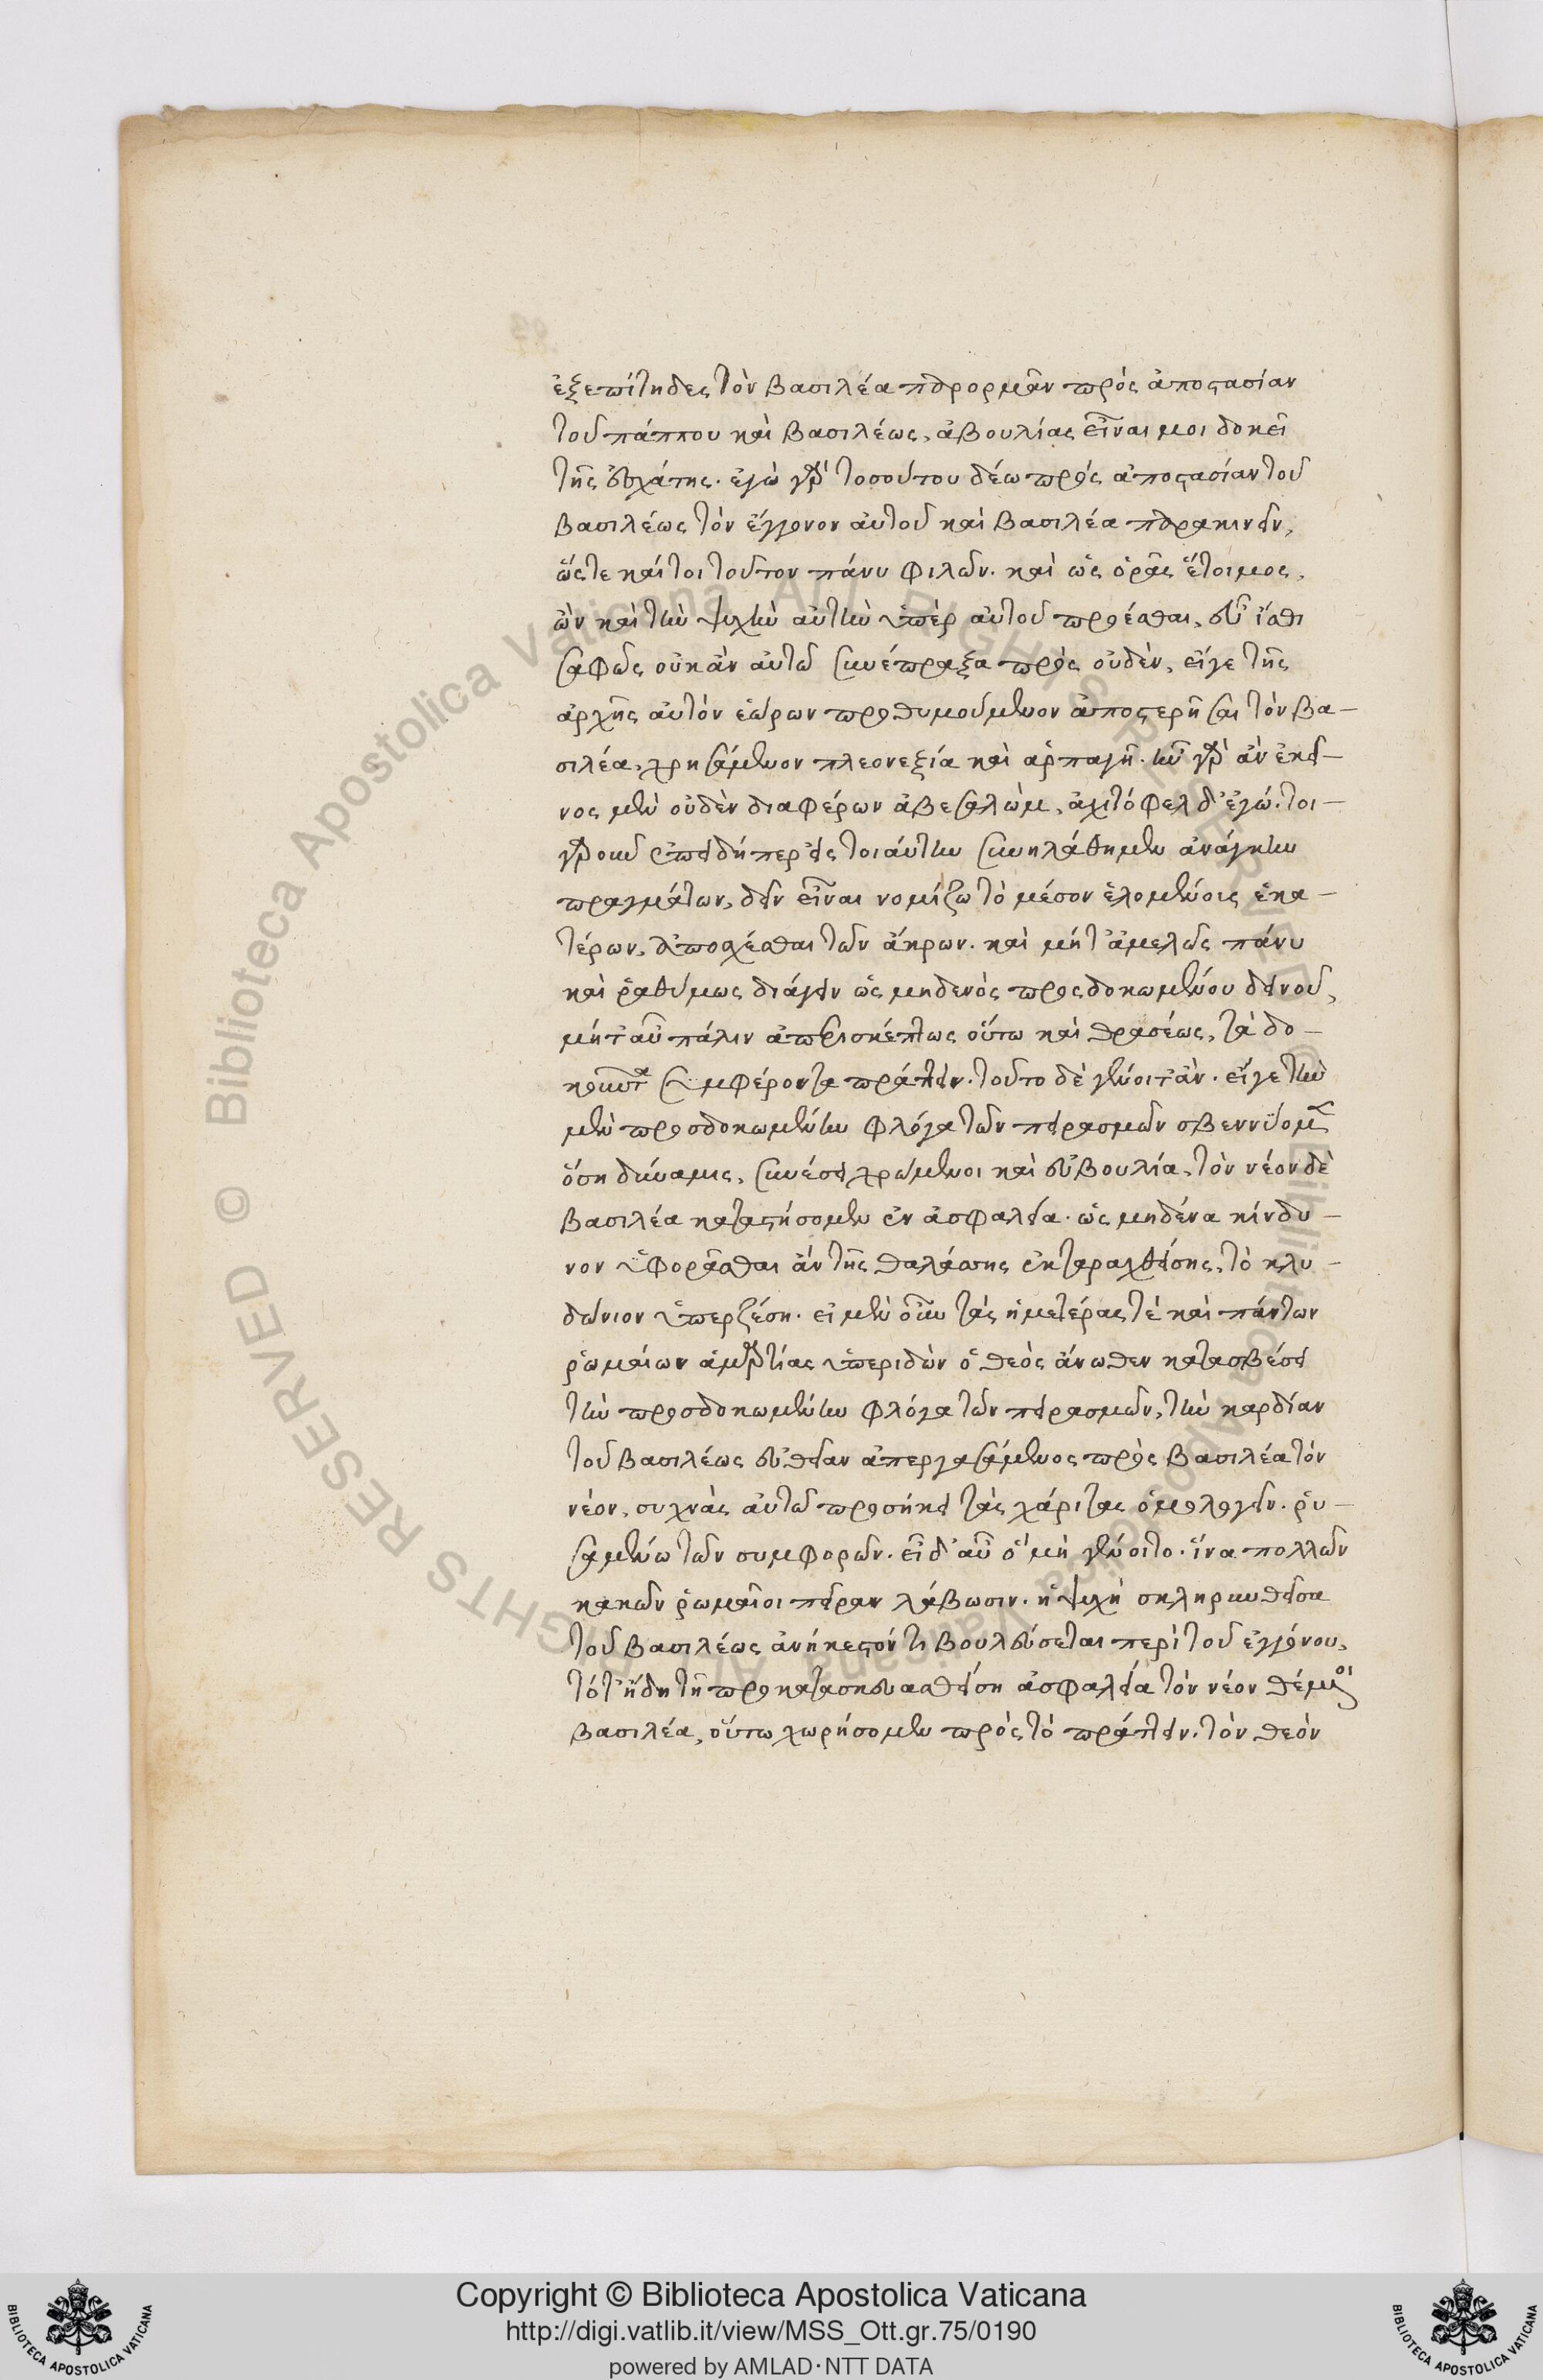 ἐξεπίτηδες τὸν βασιλέα παρορμᾶν πρὸς ἀποστασίαν
τοῦ πάππου καὶ βασιλέως, ἀβουλίας εἶναι μοι δοκεῖ
τῆς ἐσχάτης. ἐγὼ γὰρ τοσούτου δέω πρὸς ἀποστασίαν τοῦ
βασιλέως τὸν ἔγγονον αὐτοῦ καὶ βασιλέα παρακινεῖν,
ὥστε καίτοι τοῦτον πάνυ φιλῶν. καὶ ὡς ὁρᾶς ἕτοιμος,
ὢν καὶ τὴν ψυχὴν αὐτὴν ὑπὲρ αὐτοῦ προέσθαι, εὖ ἴσθι
σαφῶς οὐκ ἂν αὐτῷ συνέπραξα πρὸς οὐδὲν, εἴγε τῆς
ἀρχῆς αὐτὸν ἑώρων προθυμούμενον ἀποστερῆσαι τὸν βα-
σιλέα, χρησάμενον πλεονεξία καὶ ἁρπαγῆ. ἦν γὰρ ἂν ἐκεῖ-
νος μὲν οὐδὲν διαφέρων ἀβεσαλὼμ, ἀχιτόφελ δ' ἐγώ. τοι-
γαροῦν ἐπειδήπερ εἰς τοιαύτην συνηλάθημεν ἀνάγκην
πραγμάτων, δεῖν εἶναι νομίζω τὸ μέσον ἑλομένοις ἑκα-
τέρων, ἀποσχέσθαι τῶν ἄκρων. καὶ μήτ' ἀμελῶς πάνυ
καὶ ῥαθύμως διάγειν ὡς μηδενὸς προςδοκωμένου δεινοῦ,
μήτ' αὖ πάλιν ἀπερισκέπτως οὕτω καὶ θρασέως, τὰ δο-
κοῦντα συμφέροντα πράττειν. τοῦτο δὲ γένοιτ' ἂν. εἴγε τὴν
μὲν προσδοκωμένην φλόγα τῶν πειρασμῶν σβεννύομεν
ὅση δύναμις, συνέσει χρώμενοι καὶ εὐβουλία, τὸν νέον δὲ
βασιλέα καταστήσομεν ἐν ἀσφαλεία. ὡς μηδένα κίνδυ-
νον ὑφορᾶσθαι ἂν τῆς θαλάσσης ἐκταραχθείσης, τὸ κλυ-
δώνιον ὑπερζέση. εἰ μὲν οὖν τὰς ἡμετέρας τὲ καὶ πάντων
ῥωμαίων ἁμαρτίας ὑπεριδὼν ὁ θεὸς ἄνωθεν κατασβέσει
τὴν προσδοκωμένην φλόγα τῶν πειρασμῶν, τὴν καρδίαν
τοῦ βασιλέως εὐθεῖαν ἀπεργασάμενος πρὸς βασιλέα τὸν
νέον, συχνὰς αὐτῷ προσήκει τὰς χάριτας ὁμολογεῖν. ῥυ-
σαμένω τῶν συμφορῶν. εἰ δ' αὖ ὃ μὴ γένοιτο. ἵνα πολλῶν
κακῶν ῥωμαῖοι πεῖραν λάβωσιν. ἡ ψυχὴ σκληρυνθεῖσα
τοῦ βασιλέως ἀνήκεστόν τι βουλεύσεται περὶ τοῦ ἐγγόνου,
τότ' ἤδη τῆ προκατασκευασθείση ἀσφαλεία τὸν νέον θέμενοι
βασιλέα, οὕτω χωρήσομεν πρὸς τὸ πράττειν. τὸν θεὸν
© Biblioteca Apostolica Vaticana ALL RIGHTS RESERVED © Biblioteca Apostolica Vaticana ALL RIGHTS RESERVED
Copyright © Biblioteca Apostolica Vaticana
http://digi.vatlib.it/view/MSS_Ott.gr.75/0190
powered by AMLAD·NTT DATA
BIBLIOTECA APOSTOLICA VATICANA
BIBLIOTECA APOSTOLICA VATICANA